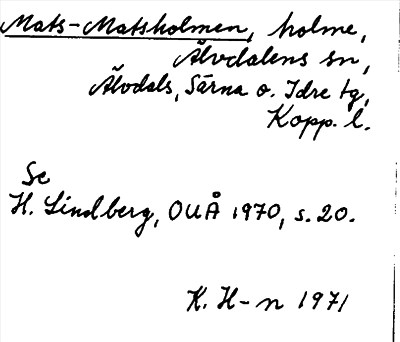 Mats-Matsholmen, holme,
Älvdalens sn,
Älvdals, Särna o. Idre tg,
Kopp. l.
Se
H. Lindberg, OUÅ 1970, s. 20.
K. H-n 1971